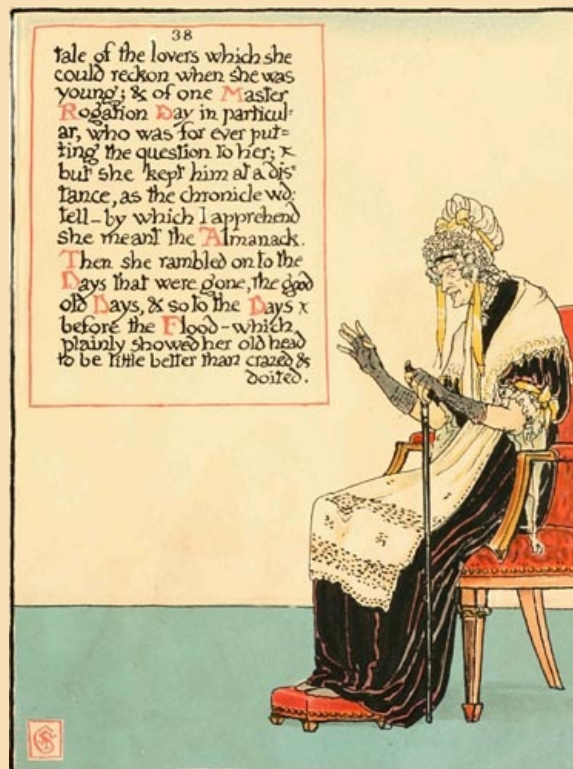 38
tale of the lovers which she
could reckon when she was
young; & of one Master
Rogation Day in particul=
ar, who was for ever put=
ting the question to her; x
but she kept him at a dis
tance, as the chronicle wd:
tell_by which I apprehend
she meant the Almanack.
Then she rambled on to the
Days that were gone, the good
old Days, & so to the Days x
before the Flood-which
plainly showed her old head
to be little better than crazed &
doited.